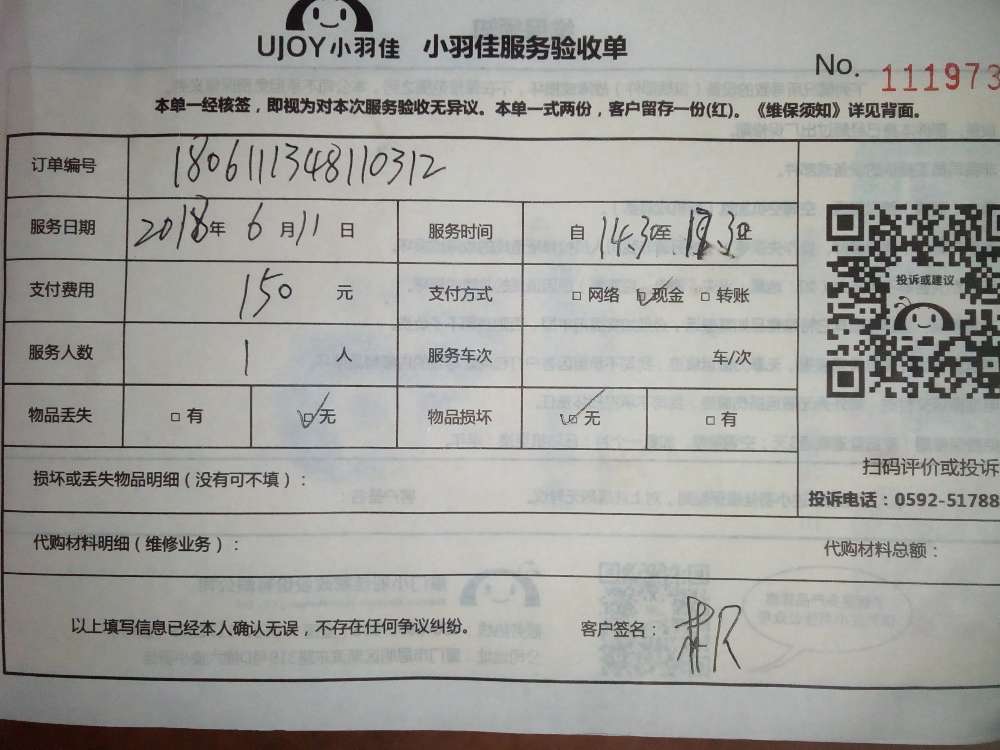 UJOY小羽佳 小羽佳服务验收单
No. 111973
本单一经核签，即视为对本次服务验收无异议。本单一式两份，客户留存一份(红)。《维保须知》详见背面。
订单编号 1806111348110312
服务日期 2018年 6 月 11 日 服务时间 自 14:30至
支付费用 150 元 支付方式 □ 网络 ☑ 现金 □ 转账
服务人数 1 人 服务车次 车/次
物品丢失 □ 有 ☑ 无 物品损坏 ☑ 无 □ 有
投诉或建议
扫码评价或投诉
投诉电话：0592-51788
损坏或丢失物品明细（没有可不填）：
代购材料明细（维修业务）： 代购材料总额：
以上填写信息已经本人确认无误，不存在任何争议纠纷。 客户签名：